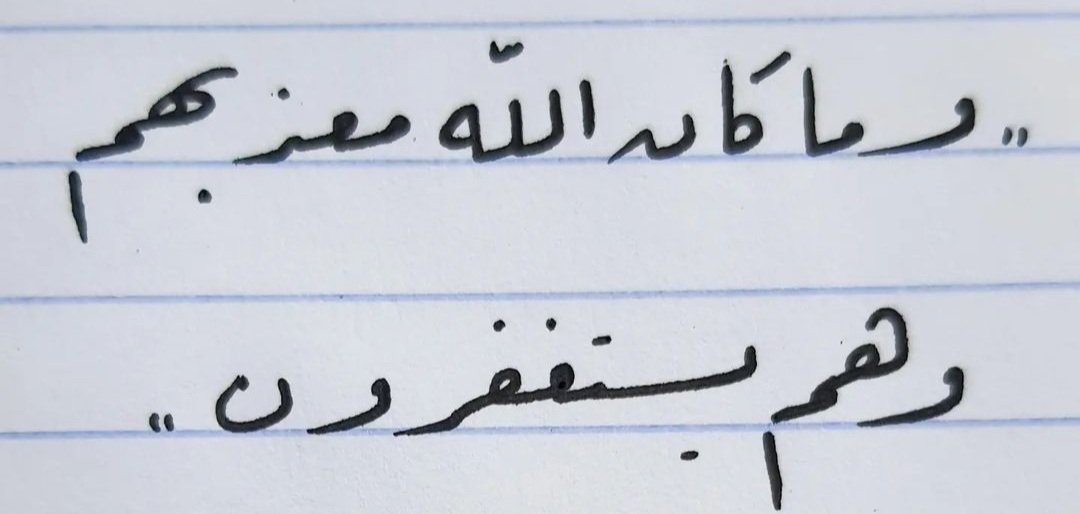 "وما كان الله معذبهم
وهم يستغفرون"